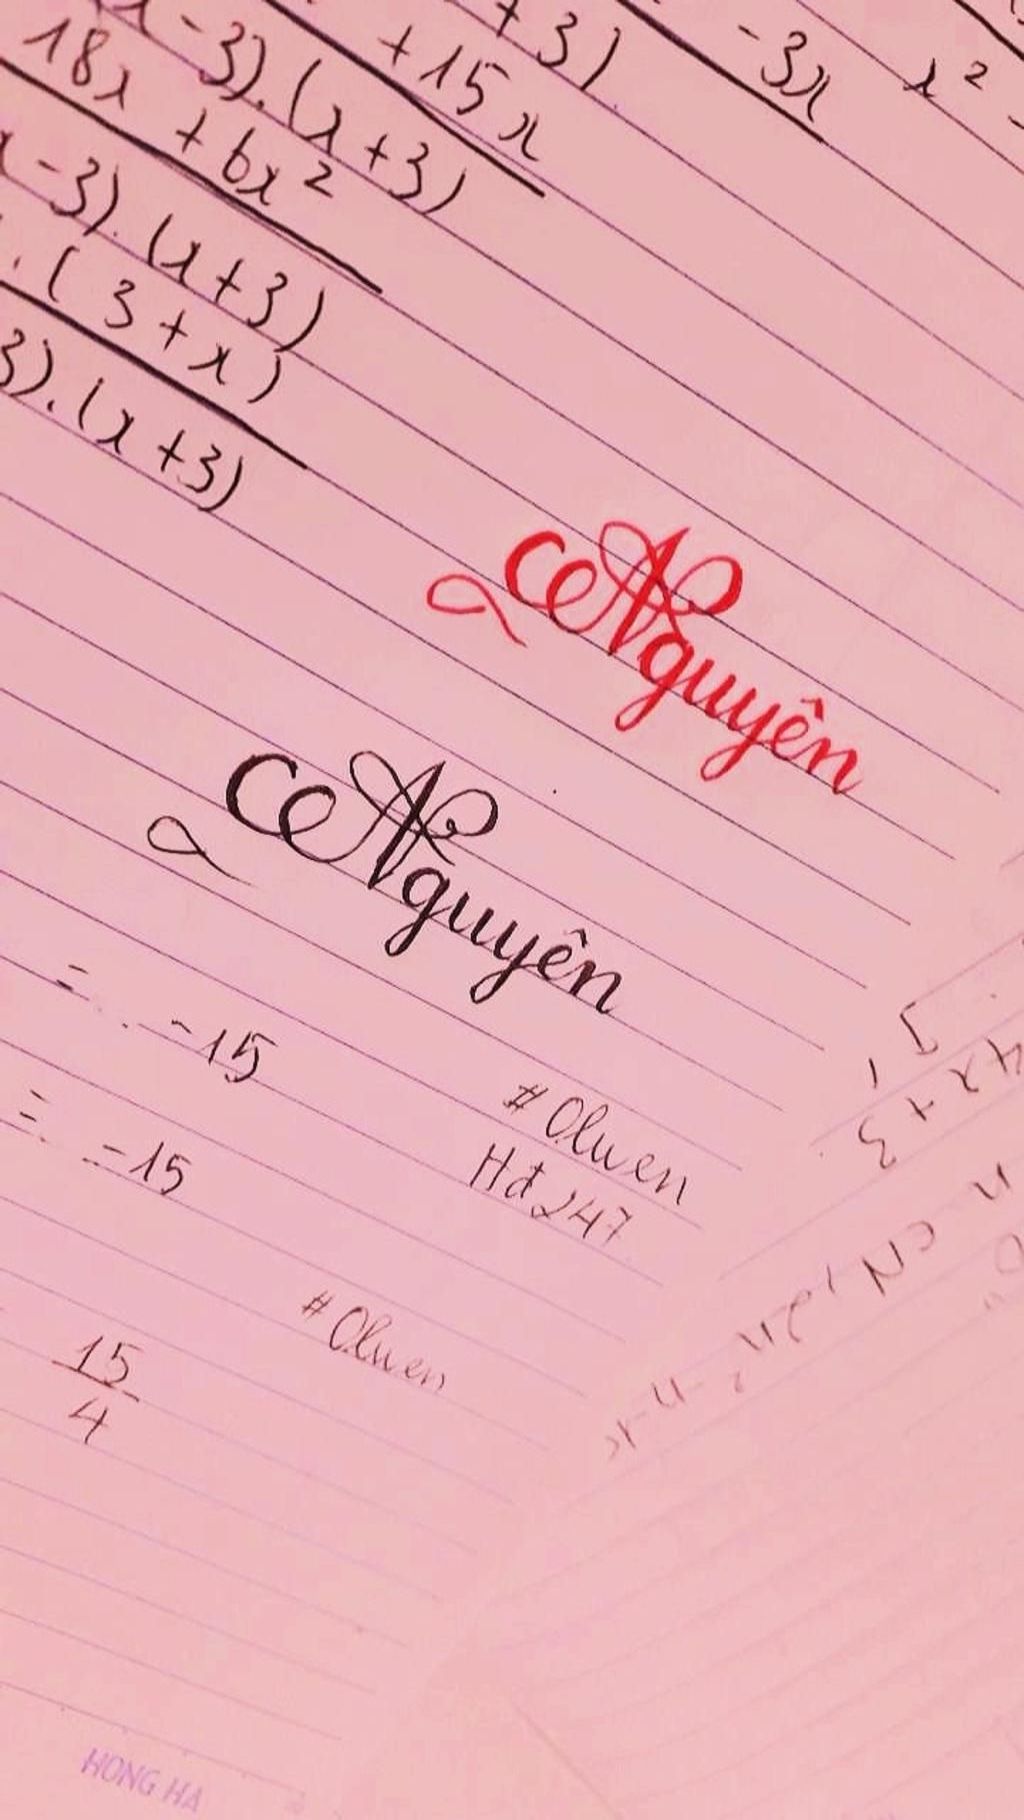 +3)
-3x
x²
+15x
x-3).(x+3)
18x + 6x²
-3).(x+3)
.(3+x)
3).(x+3)
Nguyên
Nguyên
= -15
= -15
#Olwen
Hđ247
#Olwen
15
4
4x + 3
HONG HA